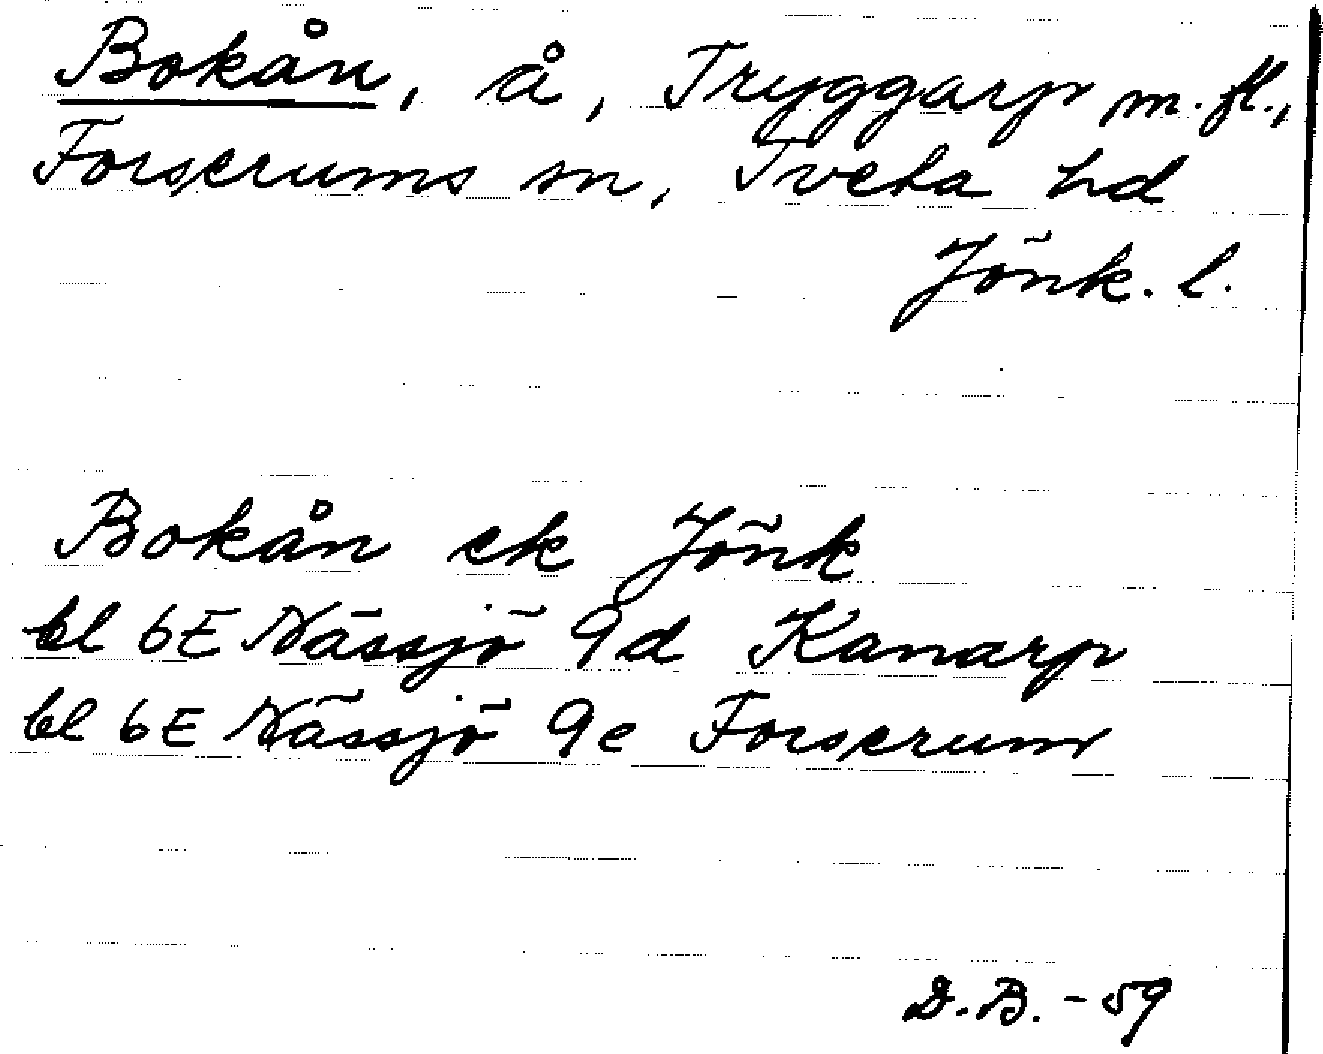 Bokån, å, Tryggarp m.fl.,
Forserums sn, Tveta hd
Jönk. l.
Bokån ek Jönk
bl 6E Nässjö 9d Kanarp
bl 6E Nässjö 9e Forserum
D.B. - 59